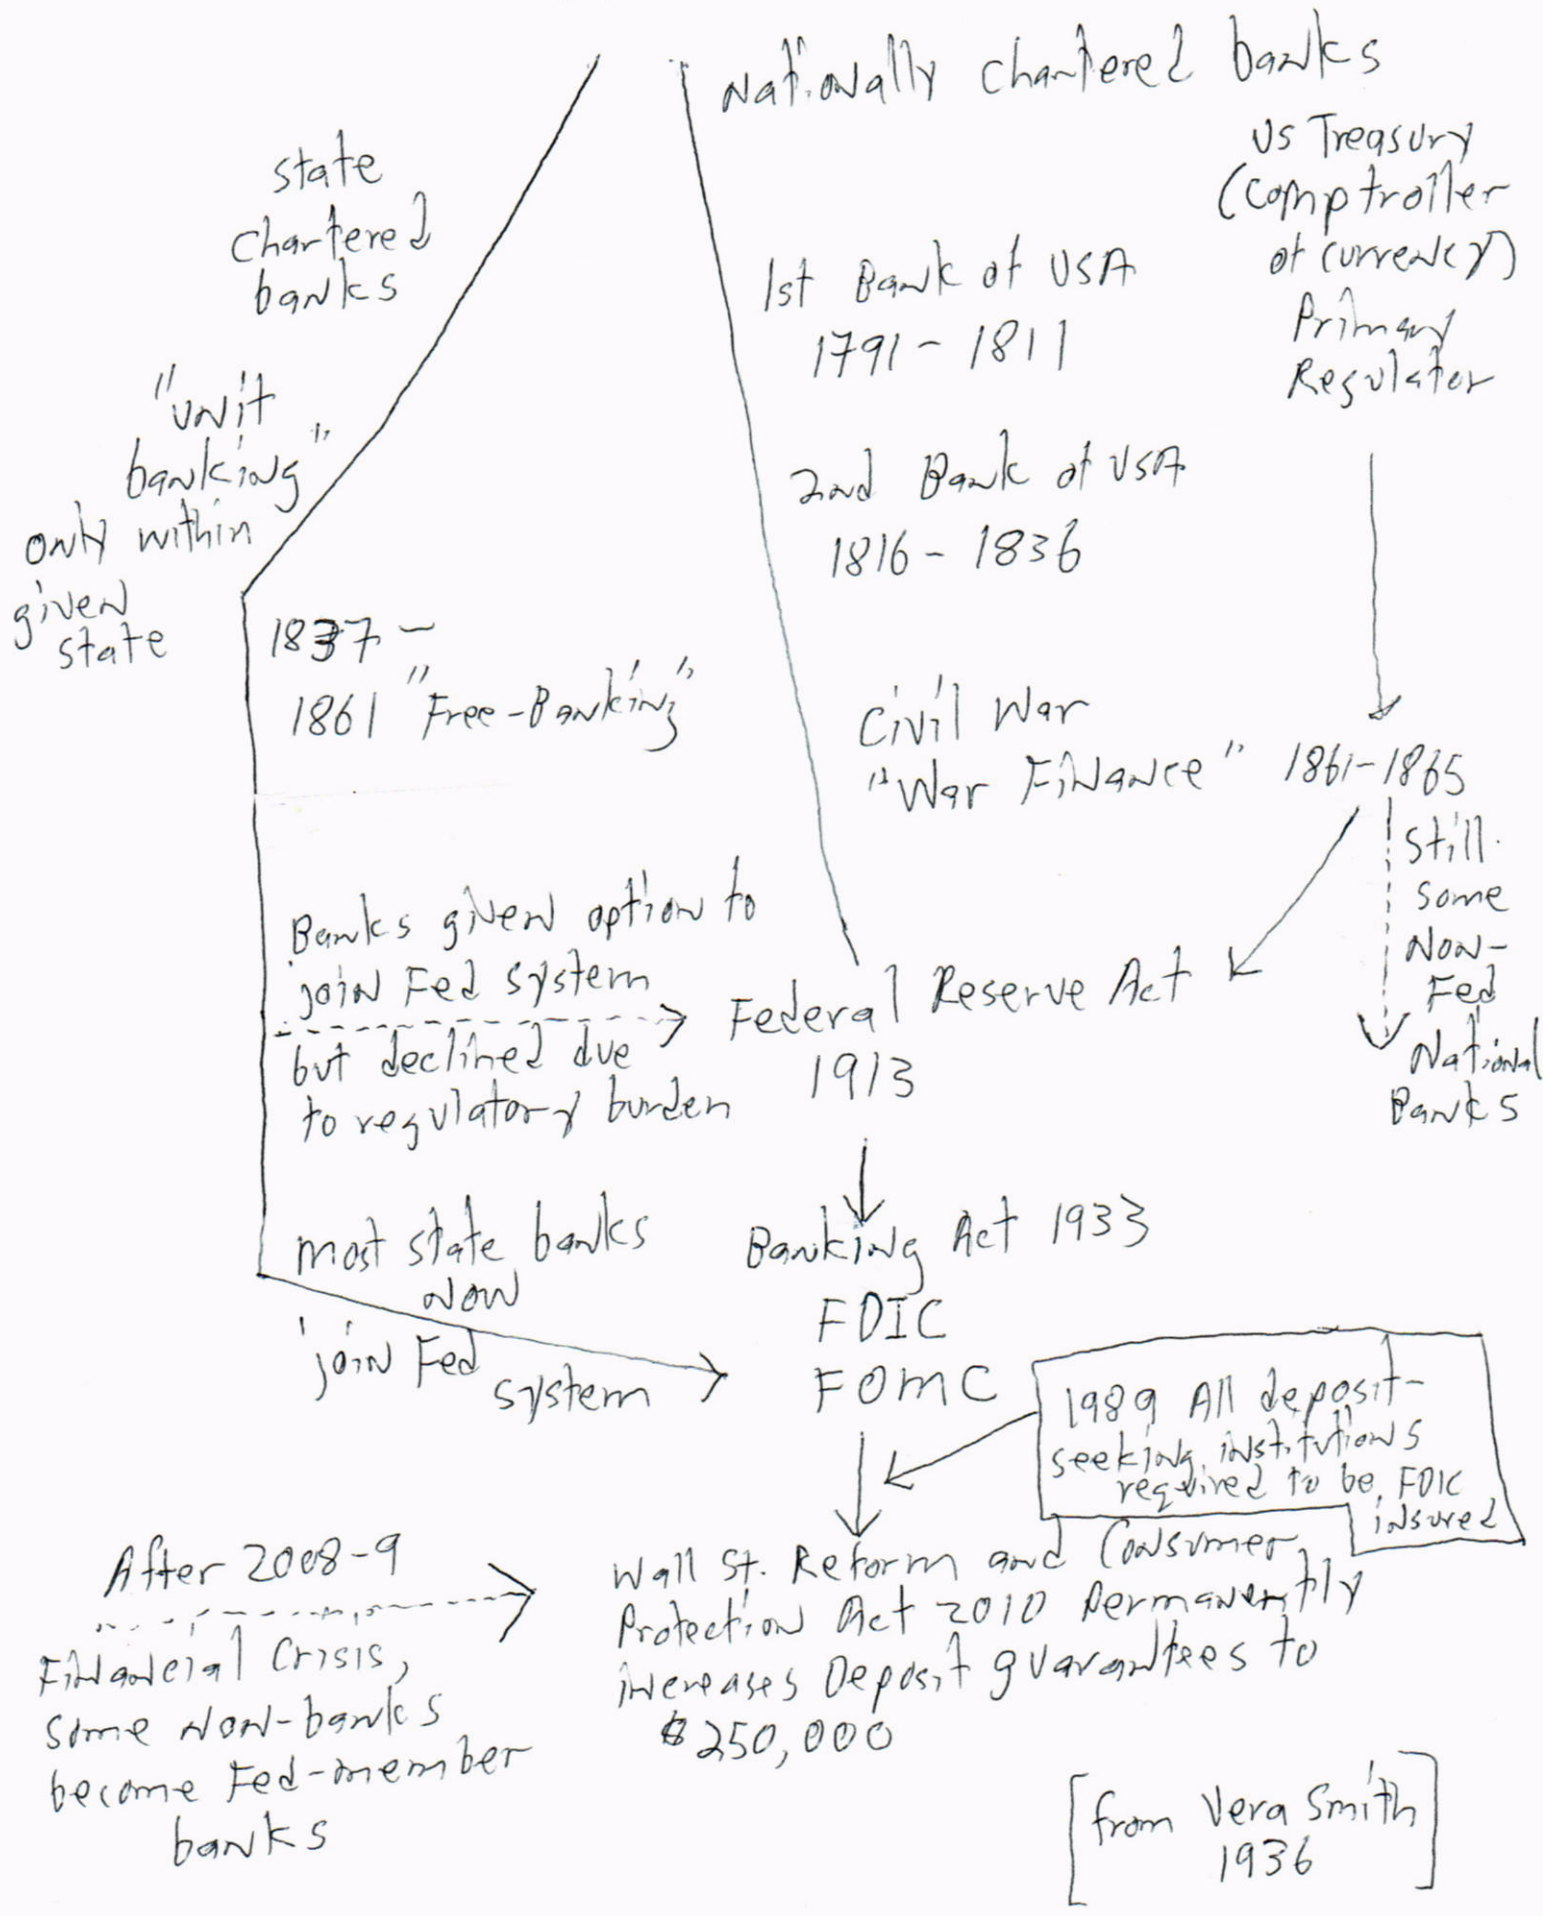 Nationally chartered banks
US Treasury
(comptroller
of currency)
Primary
Regulator
state
chartered
banks
1st Bank of USA
1791 - 1811
"unit
banking"
only within
given
state
2nd Bank of USA
1816 - 1836
1837 -
1861 "Free-Banking"
Civil War
"War Finance" 1861-1865
Still
some
Non-
Fed
National
Banks
Banks given option to
join Fed system
but declined due
to regulatory burden
Federal Reserve Act
1913
most state banks
now
join Fed
system
Banking Act 1933
FDIC
FOMC
1989 All deposit-
seeking institutions
required to be FDIC
insured
After 2008-9
Financial Crisis,
some non-banks
become Fed-member
banks
Wall St. Reform and Consumer
Protection Act 2010 permanently
increases Deposit guarantees to
$250,000
[from Vera Smith
1936]